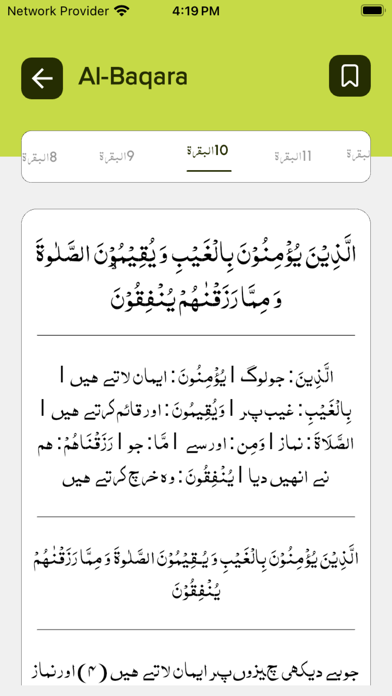 Network Provider 4:19 PM
Al-Baqara
8البقرة 9البقرة 10البقرة 11البقرة
الَّذِيْنَ يُؤْمِنُوْنَ بِالْغَيْبِ وَيُقِيْمُوْنَ الصَّلٰوةَ
وَمِمَّا رَزَقْنٰهُمْ يُنْفِقُوْنَ
الَّذِينَ : جو لوگ | يُؤْمِنُونَ : ایمان لاتے ھیں |
بِالْغَيْبِ : غیب پر | وَيُقِيمُونَ : اور قائم کرتے ھیں |
الصَّلَاةَ : نماز | وَمِن : اور سے | مَّا : جو | رَزَقْنَاهُمْ : ھم
نے انھیں دیا | يُنْفِقُونَ : وہ خرچ کرتے ھیں
الَّذِيْنَ يُؤْمِنُوْنَ بِالْغَيْبِ وَيُقِيْمُوْنَ الصَّلٰوةَ وَمِمَّا رَزَقْنٰهُمْ
يُنْفِقُوْنَ
جو بے دیکھی چیزوں پر ایمان لاتے ھیں (۴) اور نماز